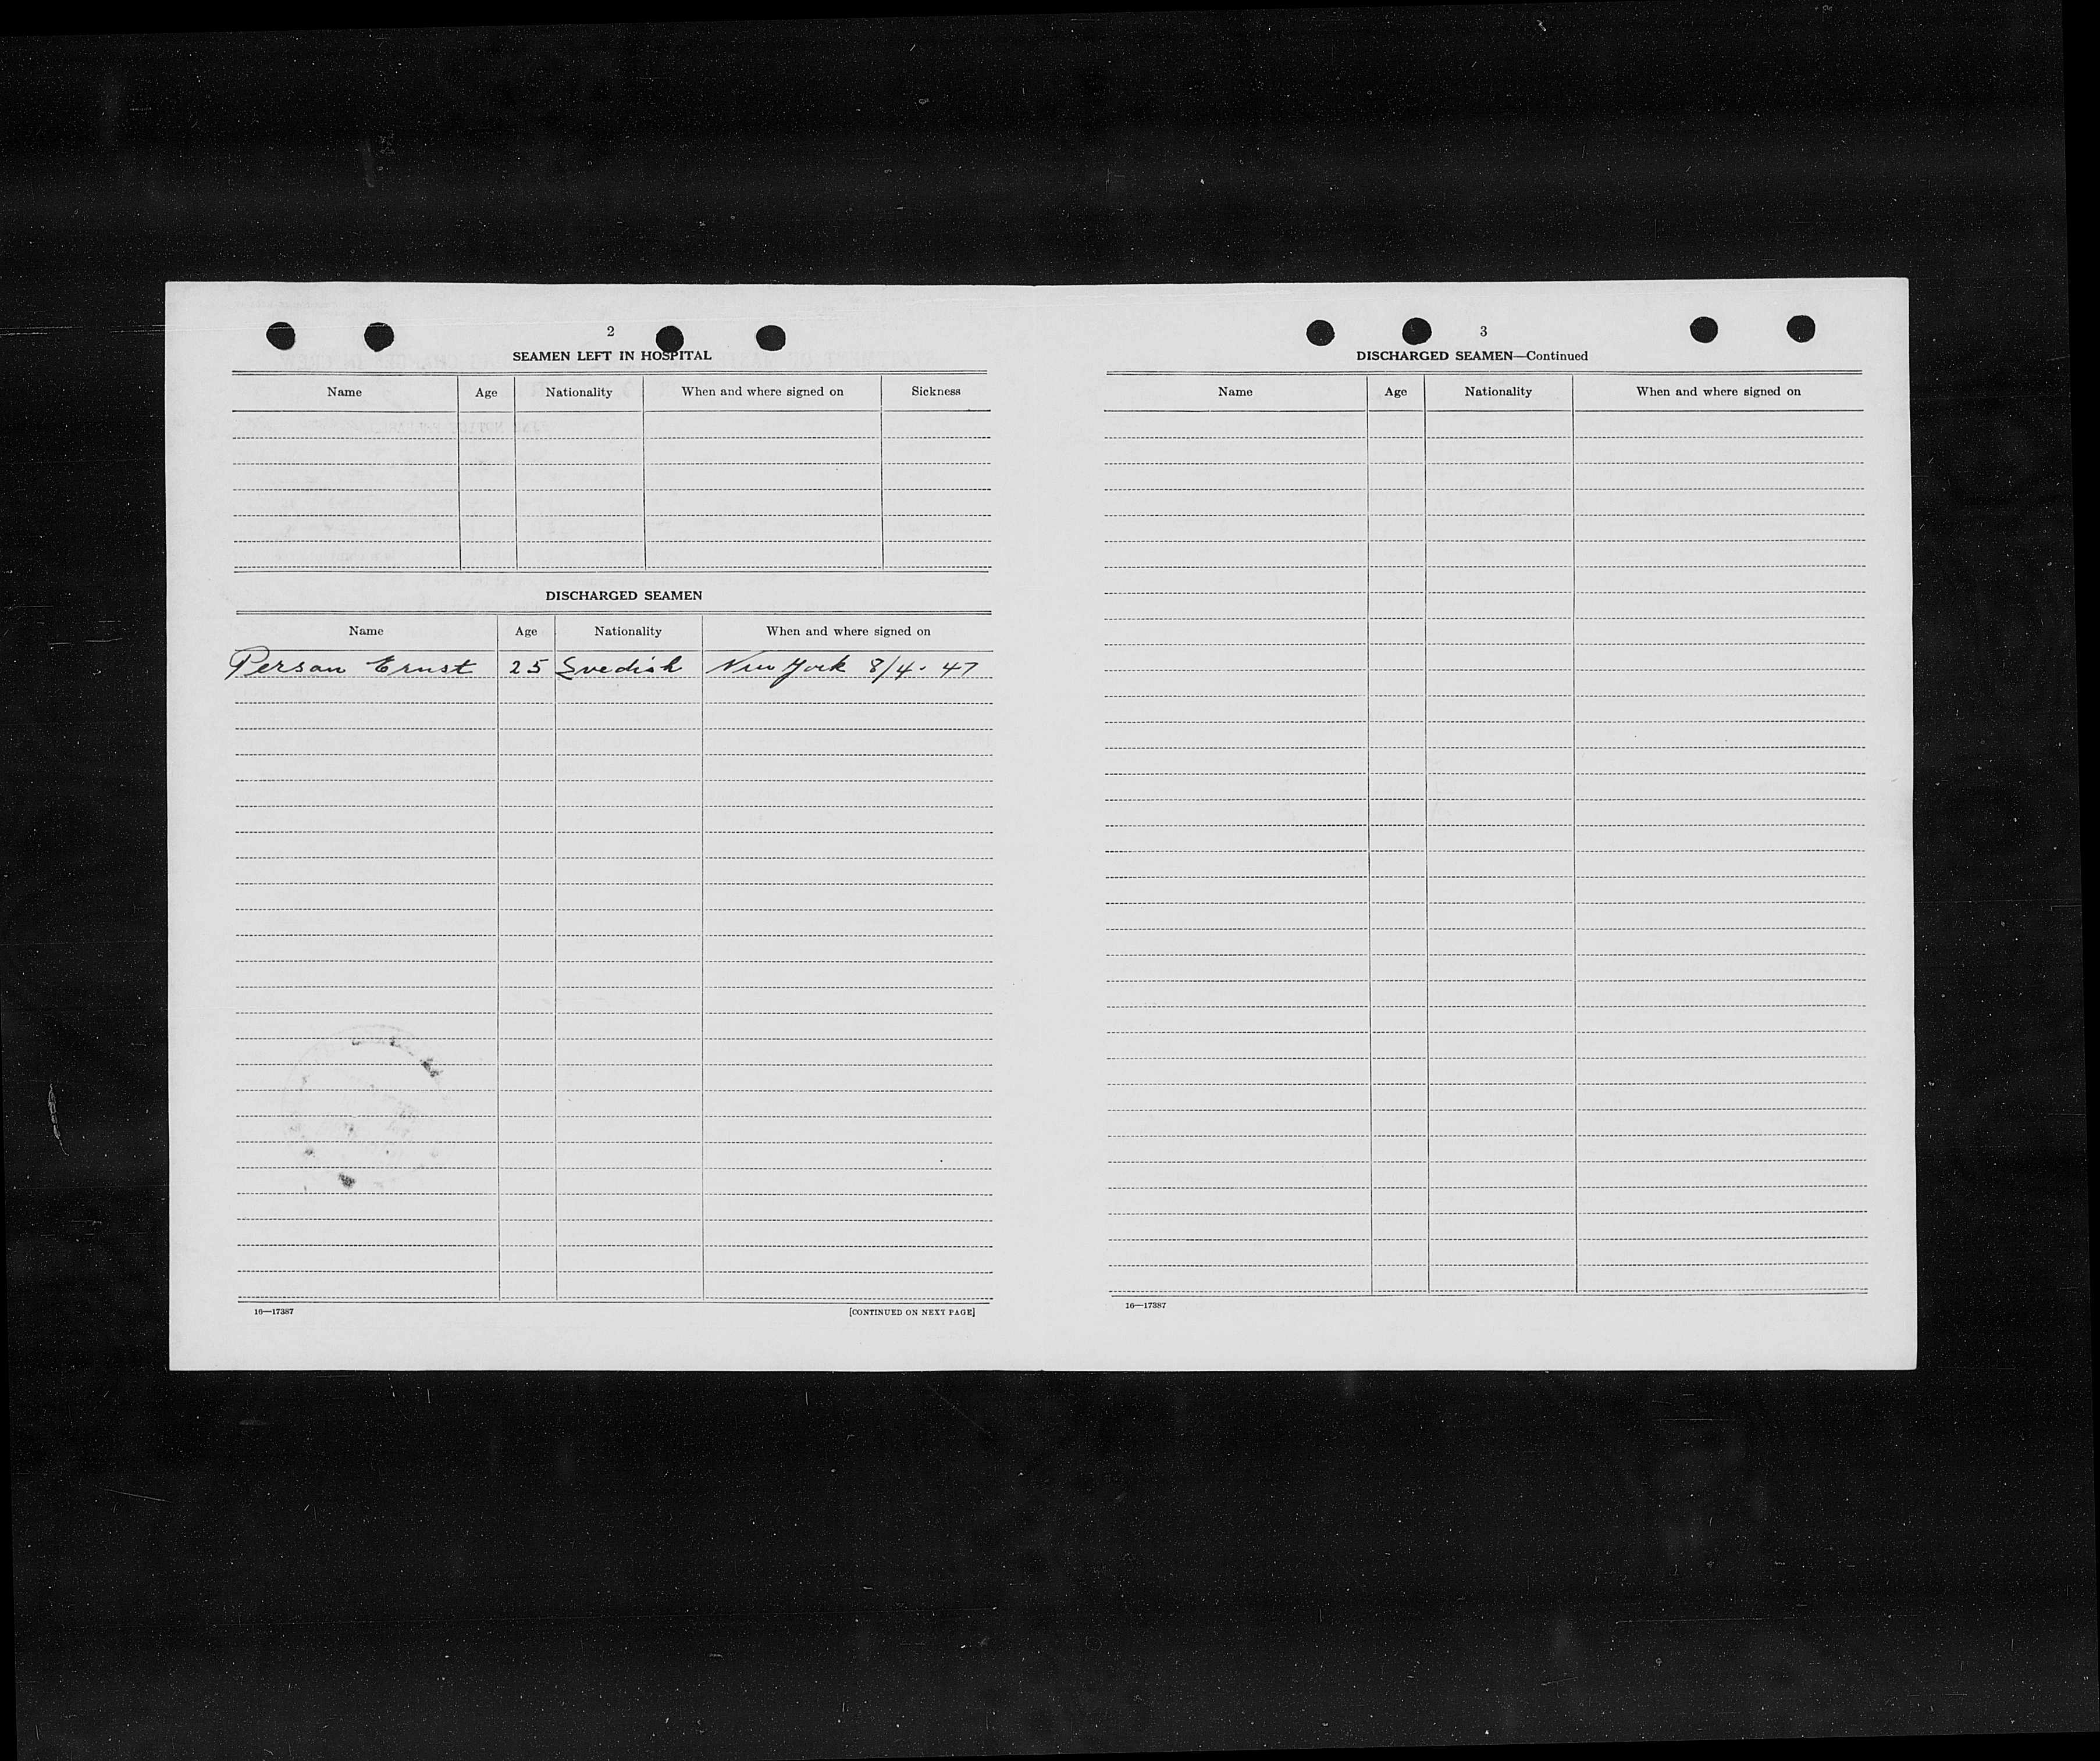 2
SEAMEN LEFT IN HOSPITAL
Name Age Nationality When and where signed on Sickness
DISCHARGED SEAMEN
Name Age Nationality When and where signed on
Person Ernst 25 Svedish New York 8/4. 47
16—17387 [CONTINUED ON NEXT PAGE]
3
DISCHARGED SEAMEN—Continued
Name Age Nationality When and where signed on
16—17387